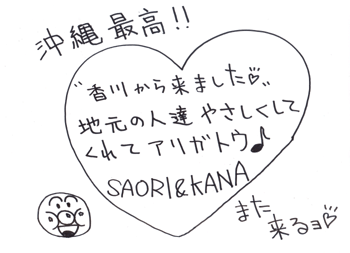 沖縄最高!!
"香川から来ました♡"
地元の人達やさしくして
くれてアリガトウ♪
SAORI&KANA
また
来るヨ♡